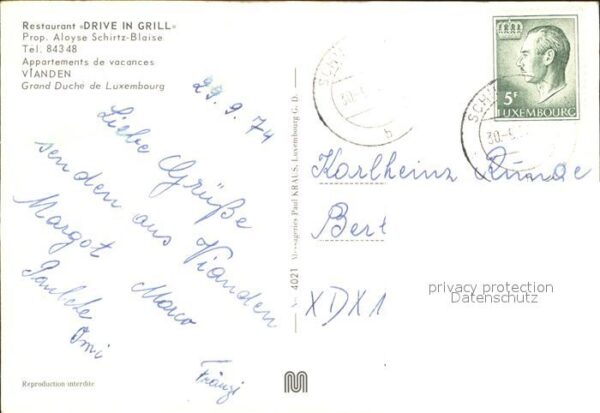 Restaurant «DRIVE IN GRILL»
Prop. Aloyse Schirtz-Blaise
Tél. 84348
Appartements de vacances
VIANDEN
Grand Duche de Luxembourg
29.9.74
Liebe Grüße
senden aus Vianden
Margot Marco
Omi
Fränzi
Reproduction interdite
No 4021 Messageries Paul KRAUS, Luxembourg G. D.
5F
LUXEMBOURG
30.
b
30.
Karlheinz
Bert
XDX1
privacy protection
Datenschutz